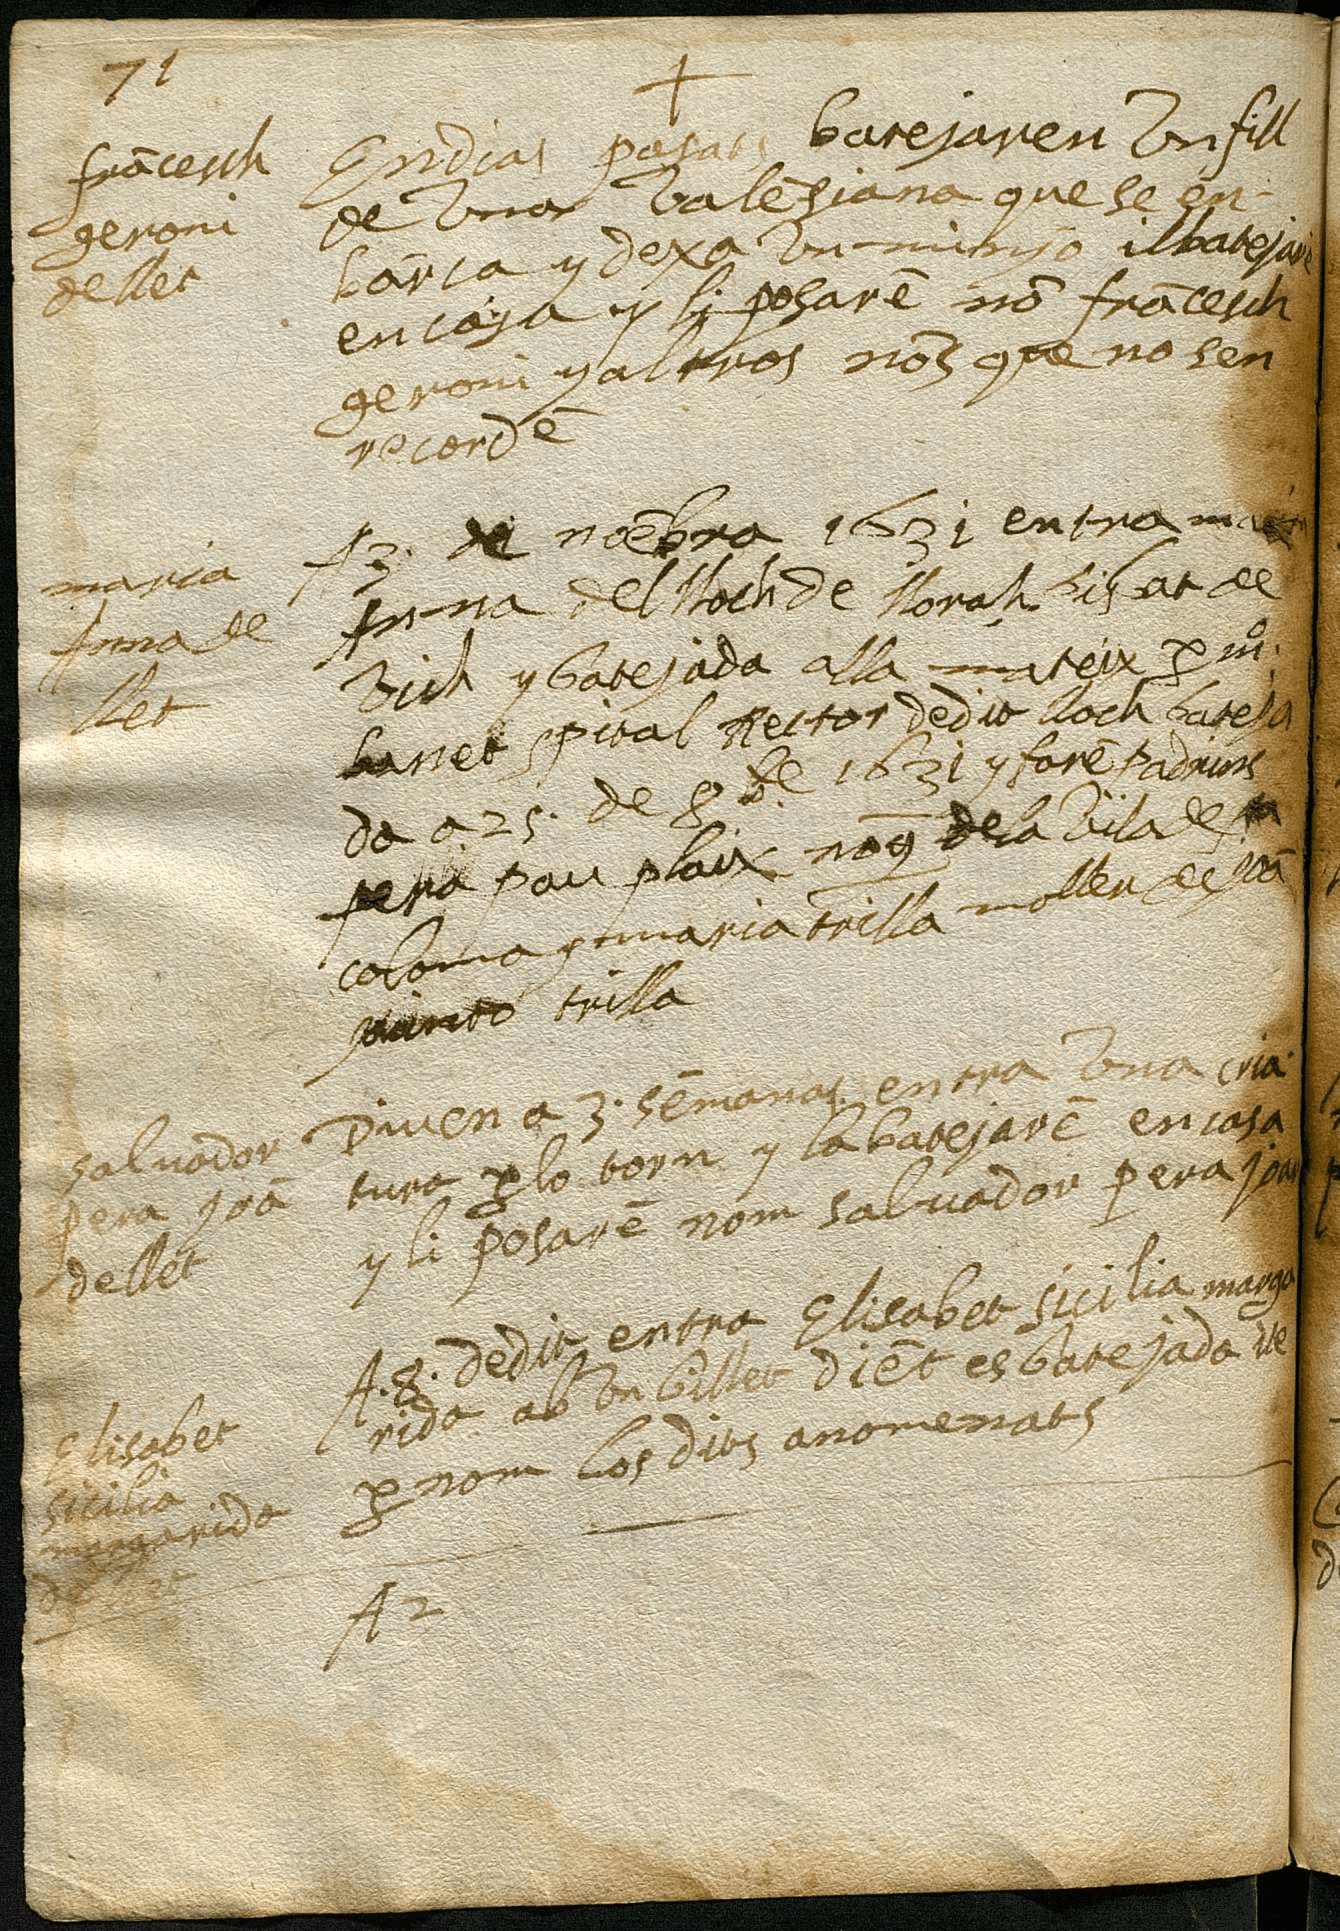 71
+
francesch
geroni
de llet
En dias pasats batejaren Un fill
de Una Valēsiana que se en-
barca y dexa Un minyo il batejarē
en casa y li posarē nō frācesch
geroni y altros nōs que no sen
recordē
maria
Anna de
llet
A 3. de noēbra 1631 entra maria
Anna del lloch de llorah bisbat de
Vich y batejada alla mateix p mº.
banet spital Rector de dit lloch bateja
da a 25. de 8bre 1631 y forē padrins
pera pau plaix nog de la Vila de sta
coloma y maria trilla moller de joā
trilla
saluador
pera joā
de llet
Diuen a 3. sēmanas entra Una cria
tura p lo torn y la batejarē en casa
y li posarē nom saluador pera joan
Elisabet
sicilia
margarida
de llet
A. 8. de dit entra Elisabet sicilia marga
rida ab Un billet diēt es batejada ite
p nom los dits anomenats
A 2